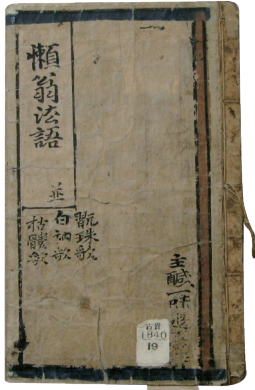 懶翁法語
並
翫珠歌
白衲歌
枯髏歌
主醎一味
古貴
1840
19